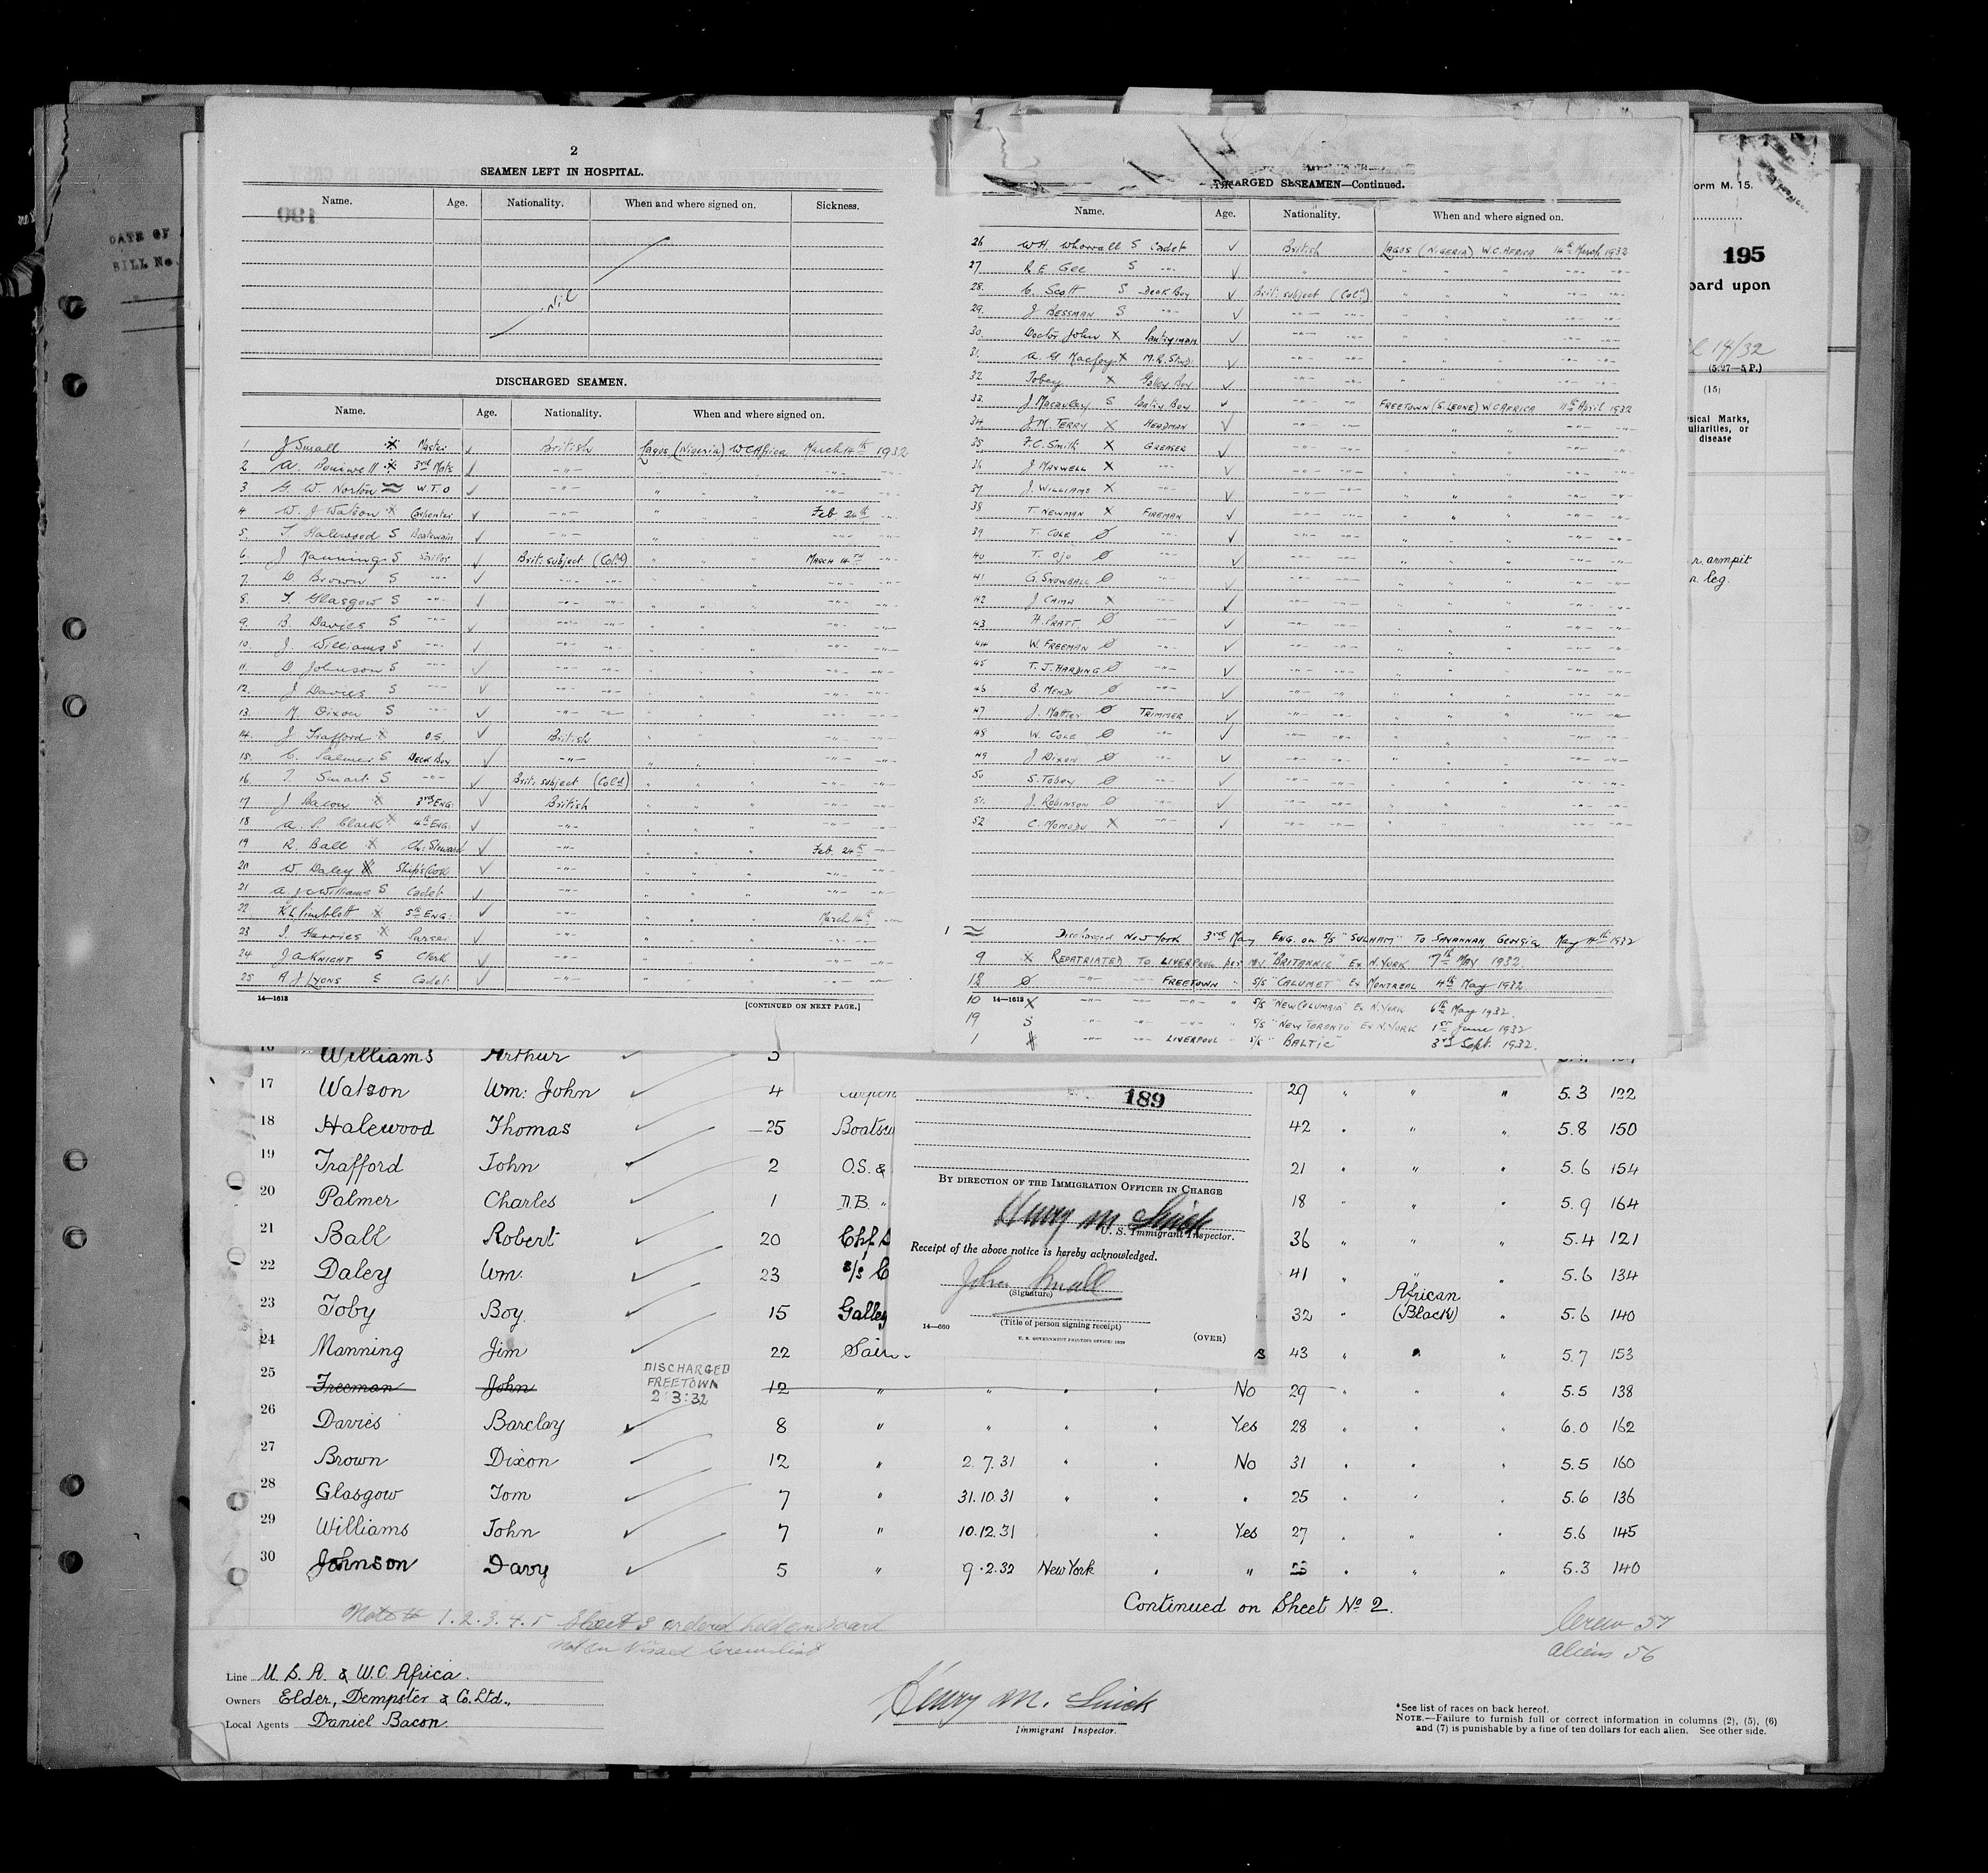 2
SEAMEN LEFT IN HOSPITAL.
Name. Age. Nationality. When and where signed on. Sickness.
Nil
DISCHARGED SEAMEN.
Name. Age. Nationality. When and where signed on.
1 J Small Master ✓ British Lagos (Nigeria) W C Africa March 14th 1932
2 A. 3rd Mate ✓ -"-
3 G. W. Norton W.T.O ✓ -"-
4 W. J Watson X Carpenter ✓ -"- Feb 24th
5. T. Halewood S Boatswain ✓ -"-
6. J Manning S Sailor ✓ Brit: subject (Col'd) MARCH 14TH
7. D. Brown S -"- ✓
8. T. Glasgow S -"- ✓
9. B. Davies S -"- ✓
10. J. Williams S -"- ✓
11. D. Johnson S -"- ✓
12. J Davies S -"- ✓
13. M. Dixon S -"- ✓
14. J. Trafford X O.S. ✓ British
15. C. Palmer S DECK BOY ✓ -"-
16 T. Smart S -"- ✓ Brit: subject (Col'd)
17 J Bacon X 3rd ENG. ✓ British
18 A. P. Clark X 4th ENG. ✓ -"-
19 R. Ball X Ch: Steward ✓ -"- Feb. 24th
20 W Daley Ship's Cook ✓ -"-
21 A. J C Williams S Cadet ✓ -"-
22 5th ENG: ✓ -"- March 14th
23 I. Harries X Purser ✓ -"-
24 J A KNIGHT S Clerk ✓ -"-
25 A J LYONS S Cadet ✓ -"-
14—1613 [CONTINUED ON NEXT PAGE.]
SEAMEN—Continued.
Name. Age. Nationality. When and where signed on.
26 W H. Whorrall S Cadet ✓ British LAGOS (NIGERIA) W.C. AFRICA 14th March 1932
27 R E Gee S -"- ✓
28. C. Scott S Deck Boy ✓ Brit: subject (Col'd)
29. J BESSMAN S -"- ✓
30. Doctor John X Pantryman ✓
31. A. G Macfoy X M.R. Stwd: ✓
32 Tobey X Galley Boy ✓
33. J. Macauley S Pantry Boy ✓ FREETOWN (S. LEONE) W C AFRICA 11th April 1932
34 J.M. TERRY X HEADMAN ✓
35 F.C. Smith X GREASER ✓
36 J MAXWELL X -"- ✓
37 J. WILLIAMS X ✓
38 T. NEWMAN X FIREMAN ✓
39 T. COLE Ø -"- ✓
40 T. Ojo Ø -"- ✓
41 G. SNOWBALL Ø ✓
42 J CAMA X -"- ✓
43 H. PRATT. Ø ✓
44 W. FREEMAN Ø -"- ✓
45 T. J. HARDING Ø -"- ✓
46 B. MENDI Ø -"- ✓
47 J. Matter Ø TRIMMER ✓
48 W. COLE Ø -"- ✓
49 J. DIXON Ø -"- ✓
50 S. Tobey Ø -"- ✓
51. J. ROBINSON Ø ✓
52 C. MOMODU X -"- ✓
1 Discharged New York 3rd May ENG. on S/S "SULHAM" TO SAVANNAH, GEORGIA May 4th 1932
9 X REPATRIATED TO LIVERPOOL per M.V. "BRITANNIC" Ex N. YORK 7th MAY 1932.
12 Ø -"- FREETOWN " S/S "CALUMET" Ex MONTREAL 4th May 1932
10 14—1613 X -"- -"- -"- " S/S "NEW COLUMBIA" Ex N. YORK 6th May 1932.
19 S -"- -"- -"- " S/S "NEW TORONTO" EX N. YORK 1st June 1932
1 -"- -"- LIVERPOOL " S/S "BALTIC" 3rd Sept. 1932.
orm M. 15.
195
oard upon
14/32
(5-27—5 P.)
(15)
sical Marks,
uliarities, or
disease
r. armpit
r. leg.
DATE OF
BILL No.
16 Williams Arthur ✓ 3
17 Watson Wm: John ✓ 4 29 " " " 5.3 122
18 Halewood Thomas ✓ 25 Boatsw 42 " " " 5.8 150
19 Trafford John ✓ 2 O.S. & 21 " " " 5.6 154
20 Palmer Charles ✓ 1 D.B. " 18 " " " 5.9 164
21 Ball Robert ✓ 20 Chf. S 36 " " " 5.4 121
22 Daley Wm. ✓ 23 s/s C 41 " " " 5.6 134
23 Toby Boy. ✓ 15 Galley 32 " African (Black) " 5.6 140
24 Manning Jim ✓ 22 Sailor s 43 " " " 5.7 153
25 Freeman John DISCHARGED FREETOWN 2:3:32 12 " " " " No 29 " " " 5.5 138
26 Davies Barclay ✓ 8 " " " " Yes 28 " " " 6.0 162
27 Brown Dixon ✓ 12 " 2.7.31 " " No 31 " " " 5.5 160
28 Glasgow Tom ✓ 7 " 31.10.31 " " " 25 " " " 5.6 136
29 Williams John ✓ 7 " 10.12.31 " Yes 27 " " " 5.6 145
30 Johnson Davy ✓ 5 " 9.2.32 New York " " 23 " " " 5.3 140
189
BY DIRECTION OF THE IMMIGRATION OFFICER IN CHARGE
Henry M Smick
U. S. Immigrant Inspector.
Receipt of the above notice is hereby acknowledged.
John Small
(Signature)
(Title of person signing receipt)
14—660 U. S. GOVERNMENT PRINTING OFFICE: 1928 (OVER)
Continued on Sheet No 2.
Note 1.2.3.4.5 Sheet 3 ordered held on board
Not on Visaed Crew list
Crew 57
Aliens 56
Line U. S. A. & W.C. Africa.
Owners Elder, Dempster & Co. Ltd.,
Local Agents Daniel Bacon.
Henry M. Smick
Immigrant Inspector.
*See list of races on back hereof.
NOTE.—Failure to furnish full or correct information in columns (2), (5), (6)
and (7) is punishable by a fine of ten dollars for each alien. See other side.